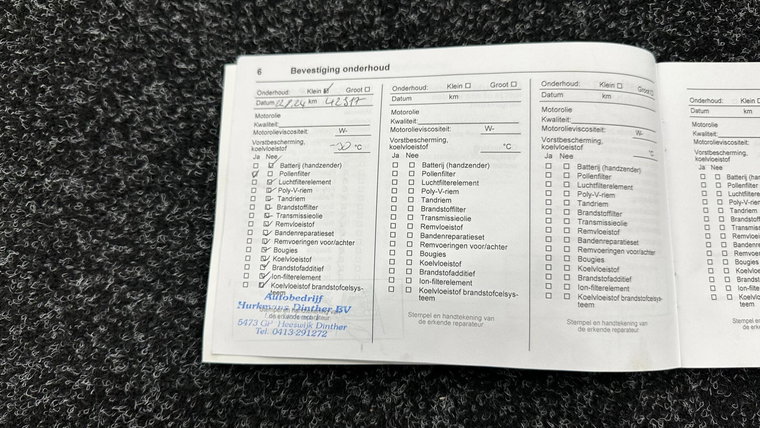 6 Bevestiging onderhoud
Onderhoud: Klein Groot
Datum km 42517
Motorolie
Kwaliteit:
Motorolieviscositeit: W-
Vorstbescherming,
koelvloeistof -30 °C
Ja Nee
Batterij (handzender)
Pollenfilter
Luchtfilterelement
Poly-V-riem
Tandriem
Brandstoffilter
Transmissieolie
Remvloeistof
Bandenreparatieset
Remvoeringen voor/achter
Bougies
Koelvloeistof
Brandstofadditief
Ion-filterelement
Koelvloeistof brandstofcelsys-
teem
Autobedrijf
Hurkmans Dinther BV
Stempel en handtekening van
de erkende reparateur
5473 GP Heeswijk Dinther
Tel. 0413-291272
Onderhoud: Klein Groot
Datum km
Motorolie
Kwaliteit:
Motorolieviscositeit: W-
Vorstbescherming,
koelvloeistof °C
Ja Nee
Batterij (handzender)
Pollenfilter
Luchtfilterelement
Poly-V-riem
Tandriem
Brandstoffilter
Transmissieolie
Remvloeistof
Bandenreparatieset
Remvoeringen voor/achter
Bougies
Koelvloeistof
Brandstofadditief
Ion-filterelement
Koelvloeistof brandstofcelsys-
teem
Stempel en handtekening van
de erkende reparateur
Onderhoud: Klein Groot
Datum km
Motorolie
Kwaliteit:
Motorolieviscositeit: W-
Vorstbescherming,
koelvloeistof °C
Ja Nee
Batterij (handzender)
Pollenfilter
Luchtfilterelement
Poly-V-riem
Tandriem
Brandstoffilter
Transmissieolie
Remvloeistof
Bandenreparatieset
Remvoeringen voor/achter
Bougies
Koelvloeistof
Brandstofadditief
Ion-filterelement
Koelvloeistof brandstofcelsys-
teem
Stempel en handtekening van
de erkende reparateur
Onderhoud: Klein
Datum km
Motorolie
Kwaliteit:
Motorolieviscositeit:
Vorstbescherming,
koelvloeistof
Ja Nee
Batterij (han
Pollenfilter
Luchtfilterele
Poly-V-riem
Tandriem
Brandstoffilt
Transmissie
Remvloeisto
Bandenrepa
Remvoering
Bougies
Koelvloeisto
Brandstofad
Ion-filterele
Koelvloeisto
teem
Stempel en
de erke